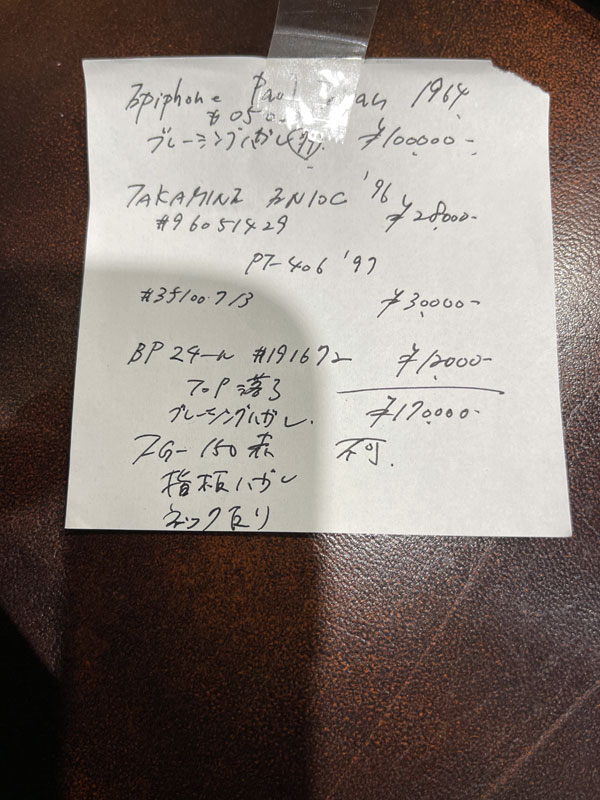 Epiphone Paul 1964
# 05
ブレーシングハガレ ¥100000-
TAKAMINE EN10C '96
#96051429 ¥28000-
PT-406 '97
#35100713 ¥30000-
BP #191672 ¥12000-
TOP 落ろ
ブレーシングハガレ. ¥170000-
FG-150 赤 不可.
指板ハガレ
ネック反り